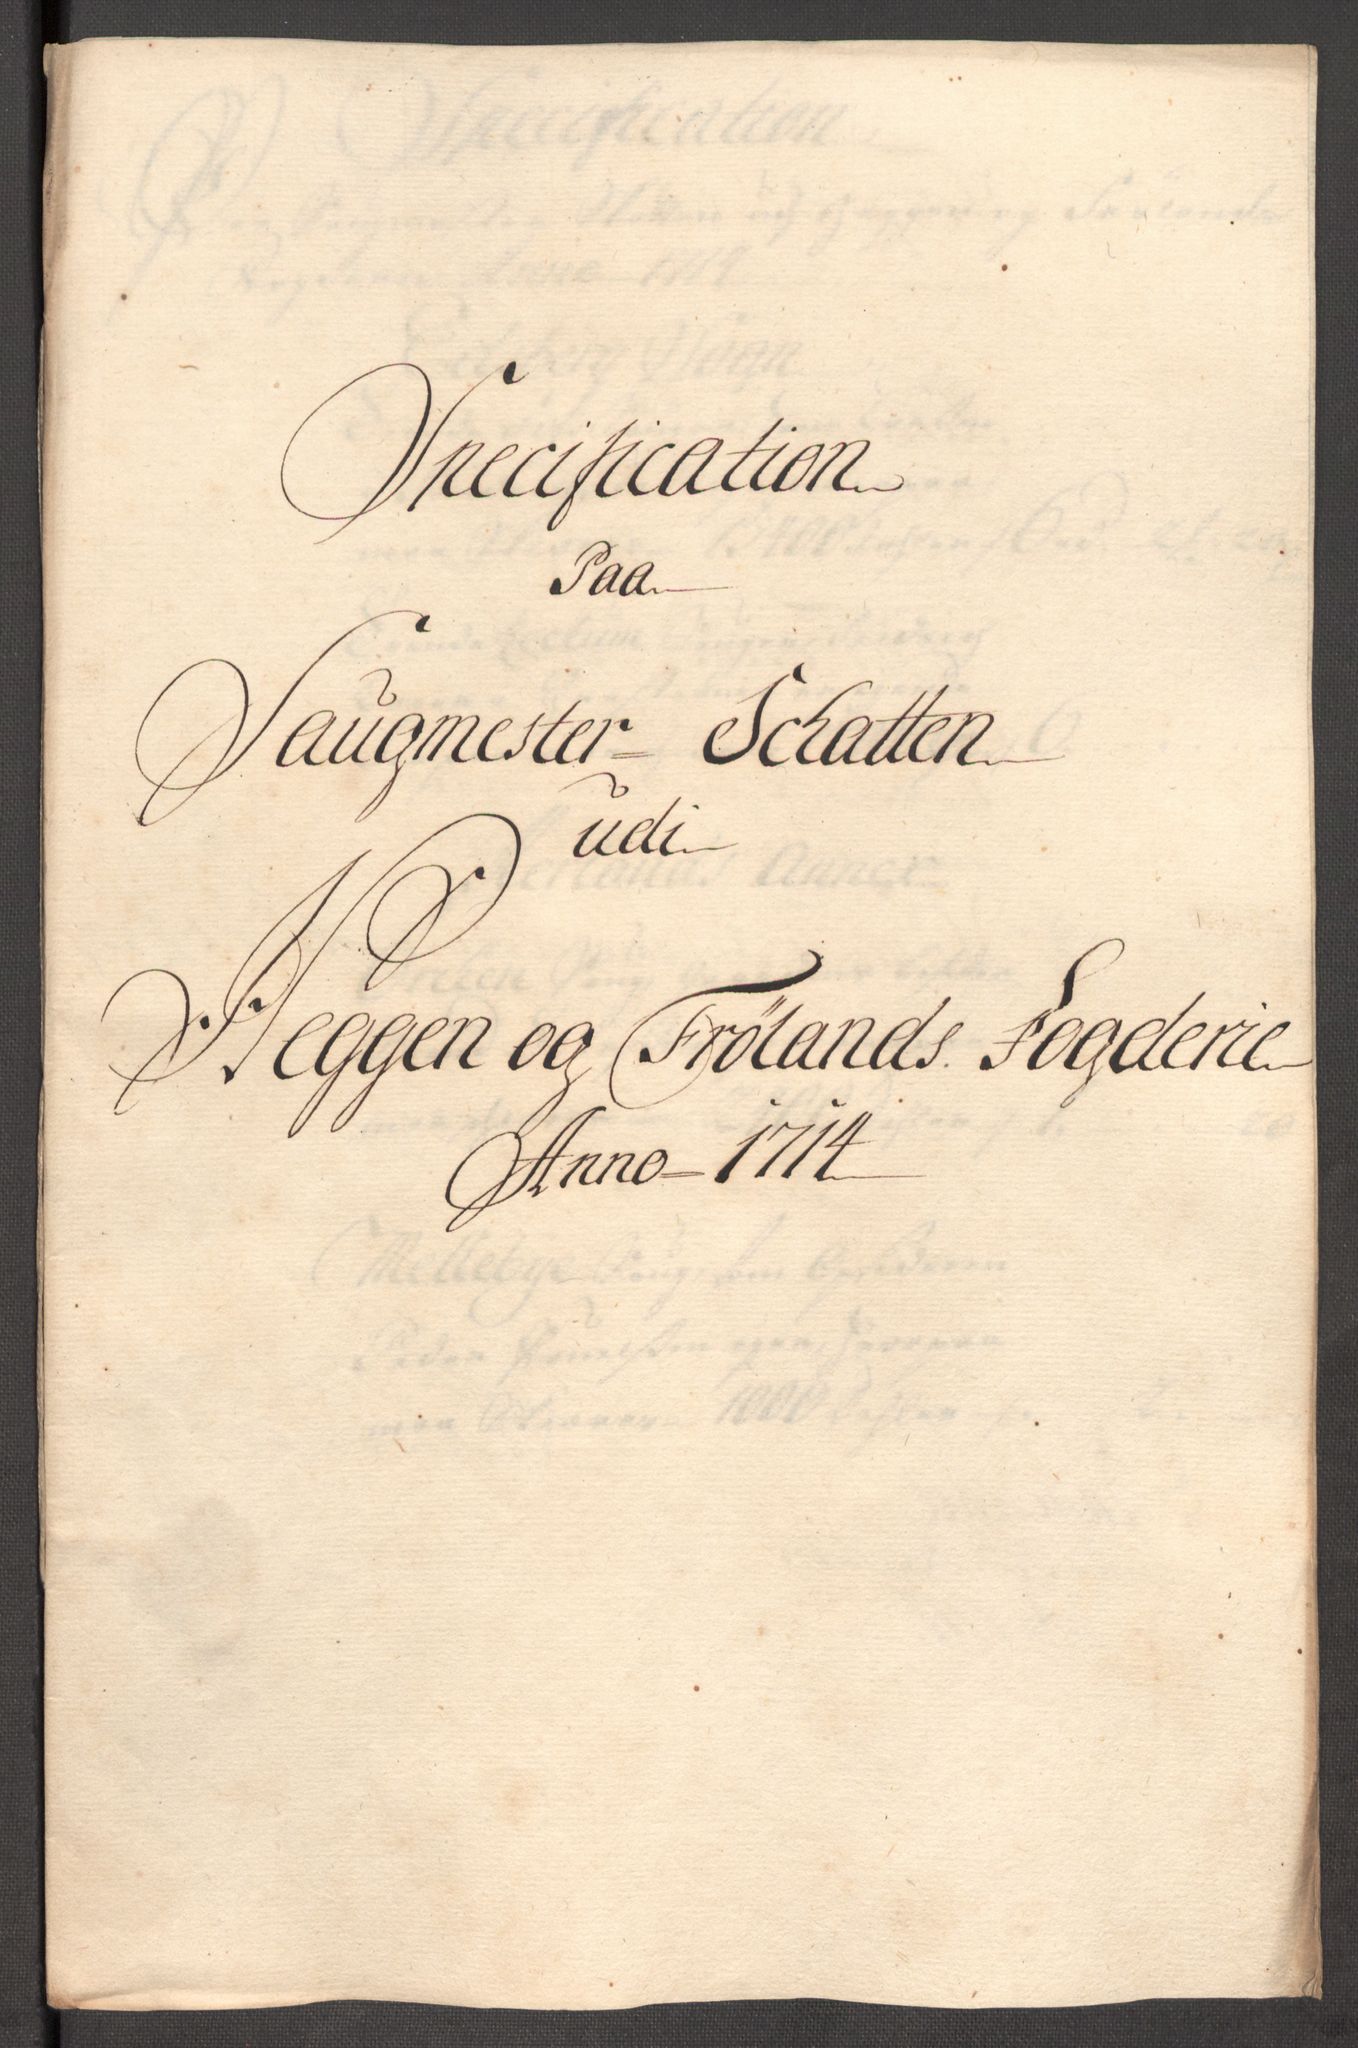 Specification
Paa
Saugmester- Schatten
udi
Heggen og Frölands Fogderie
Anno 1714